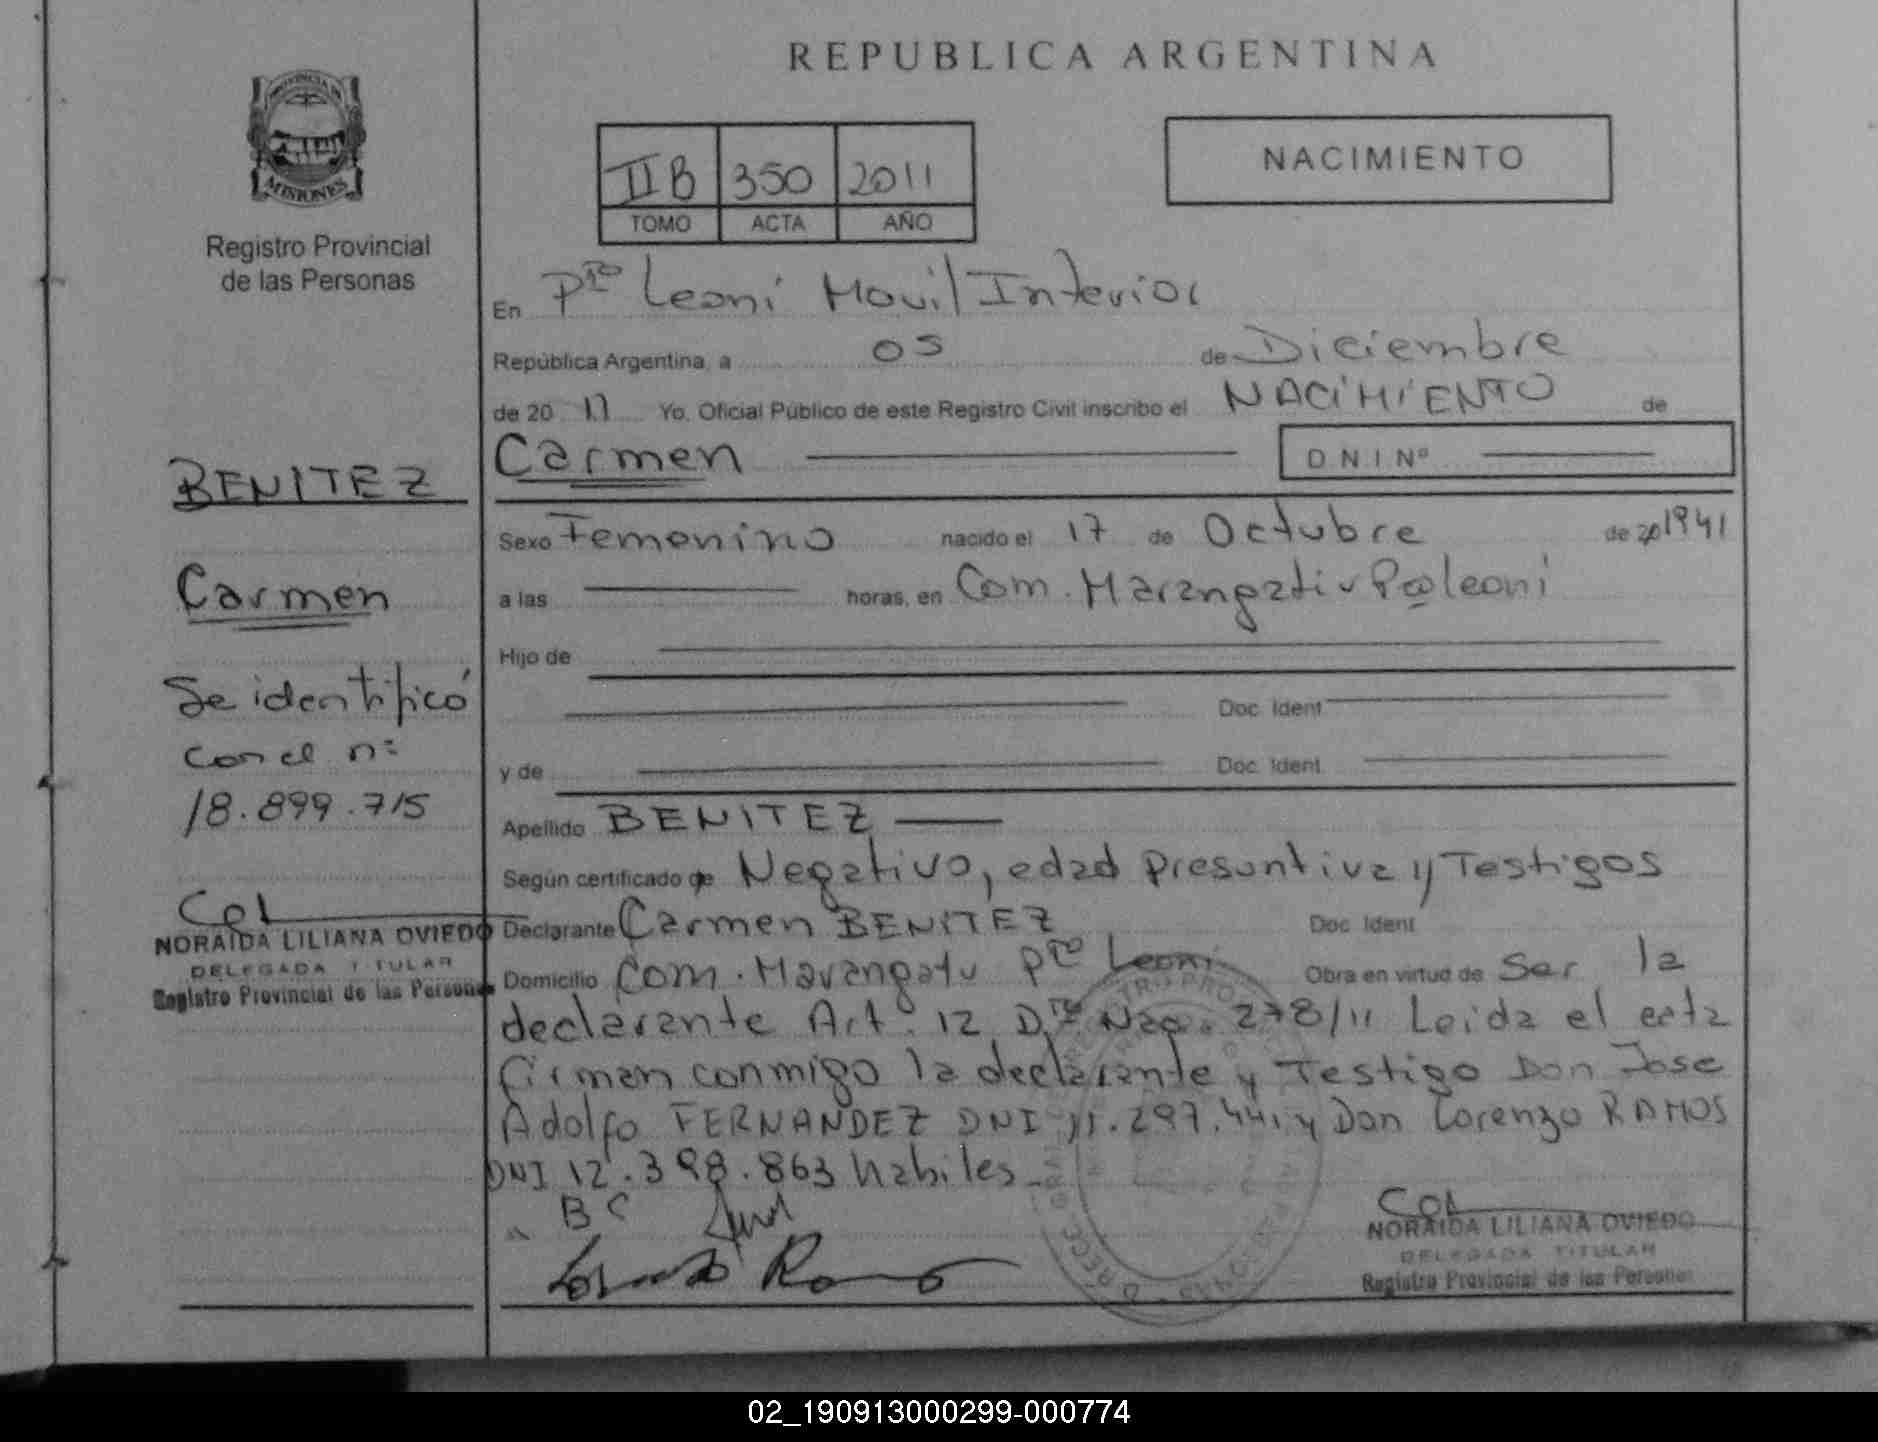 REPUBLICA ARGENTINA
PROVINCIA DE
MISIONES
Registro Provincial
de las Personas
IIB 350 2011
TOMO ACTA AÑO
NACIMIENTO
En Pto Leoni Movil Interior
República Argentina, a 05 de Diciembre
de 20 11 Yo, Oficial Público de este Registro Civil inscribo el NACIMIENTO de
Carmen D N I Nº
Sexo Femenino nacido el 17 de Octubre de 20 1941
a las horas, en Com. Marangatu Pto leoni
Hijo de
Doc. Ident
y de Doc. Ident.
Apellido BENITEZ
Según certificado de Negativo, edad Presuntiva y Testigos
Declarante Carmen BENITEZ Doc. Ident
Domicilio Com. Marangatu Pto Leoni Obra en virtud de Ser la
declarante Art. 12 Dto Nac. 278/11 Leida el acta
firman conmigo la declarante y Testigo Don Jose
Adolfo FERNANDEZ DNI 11.297.441 y Don Lorenzo RAMOS
DNI 12.398.863 habiles
B C
NORAIDA LILIANA OVIEDO
DELEGADA TITULAR
Registro Provincial de las Personas
BENITEZ
Carmen
Se identificó
con el nº
18.899.715
NORAIDA LILIANA OVIEDO
DELEGADA TITULAR
Registro Provincial de las Personas
02_190913000299-000774